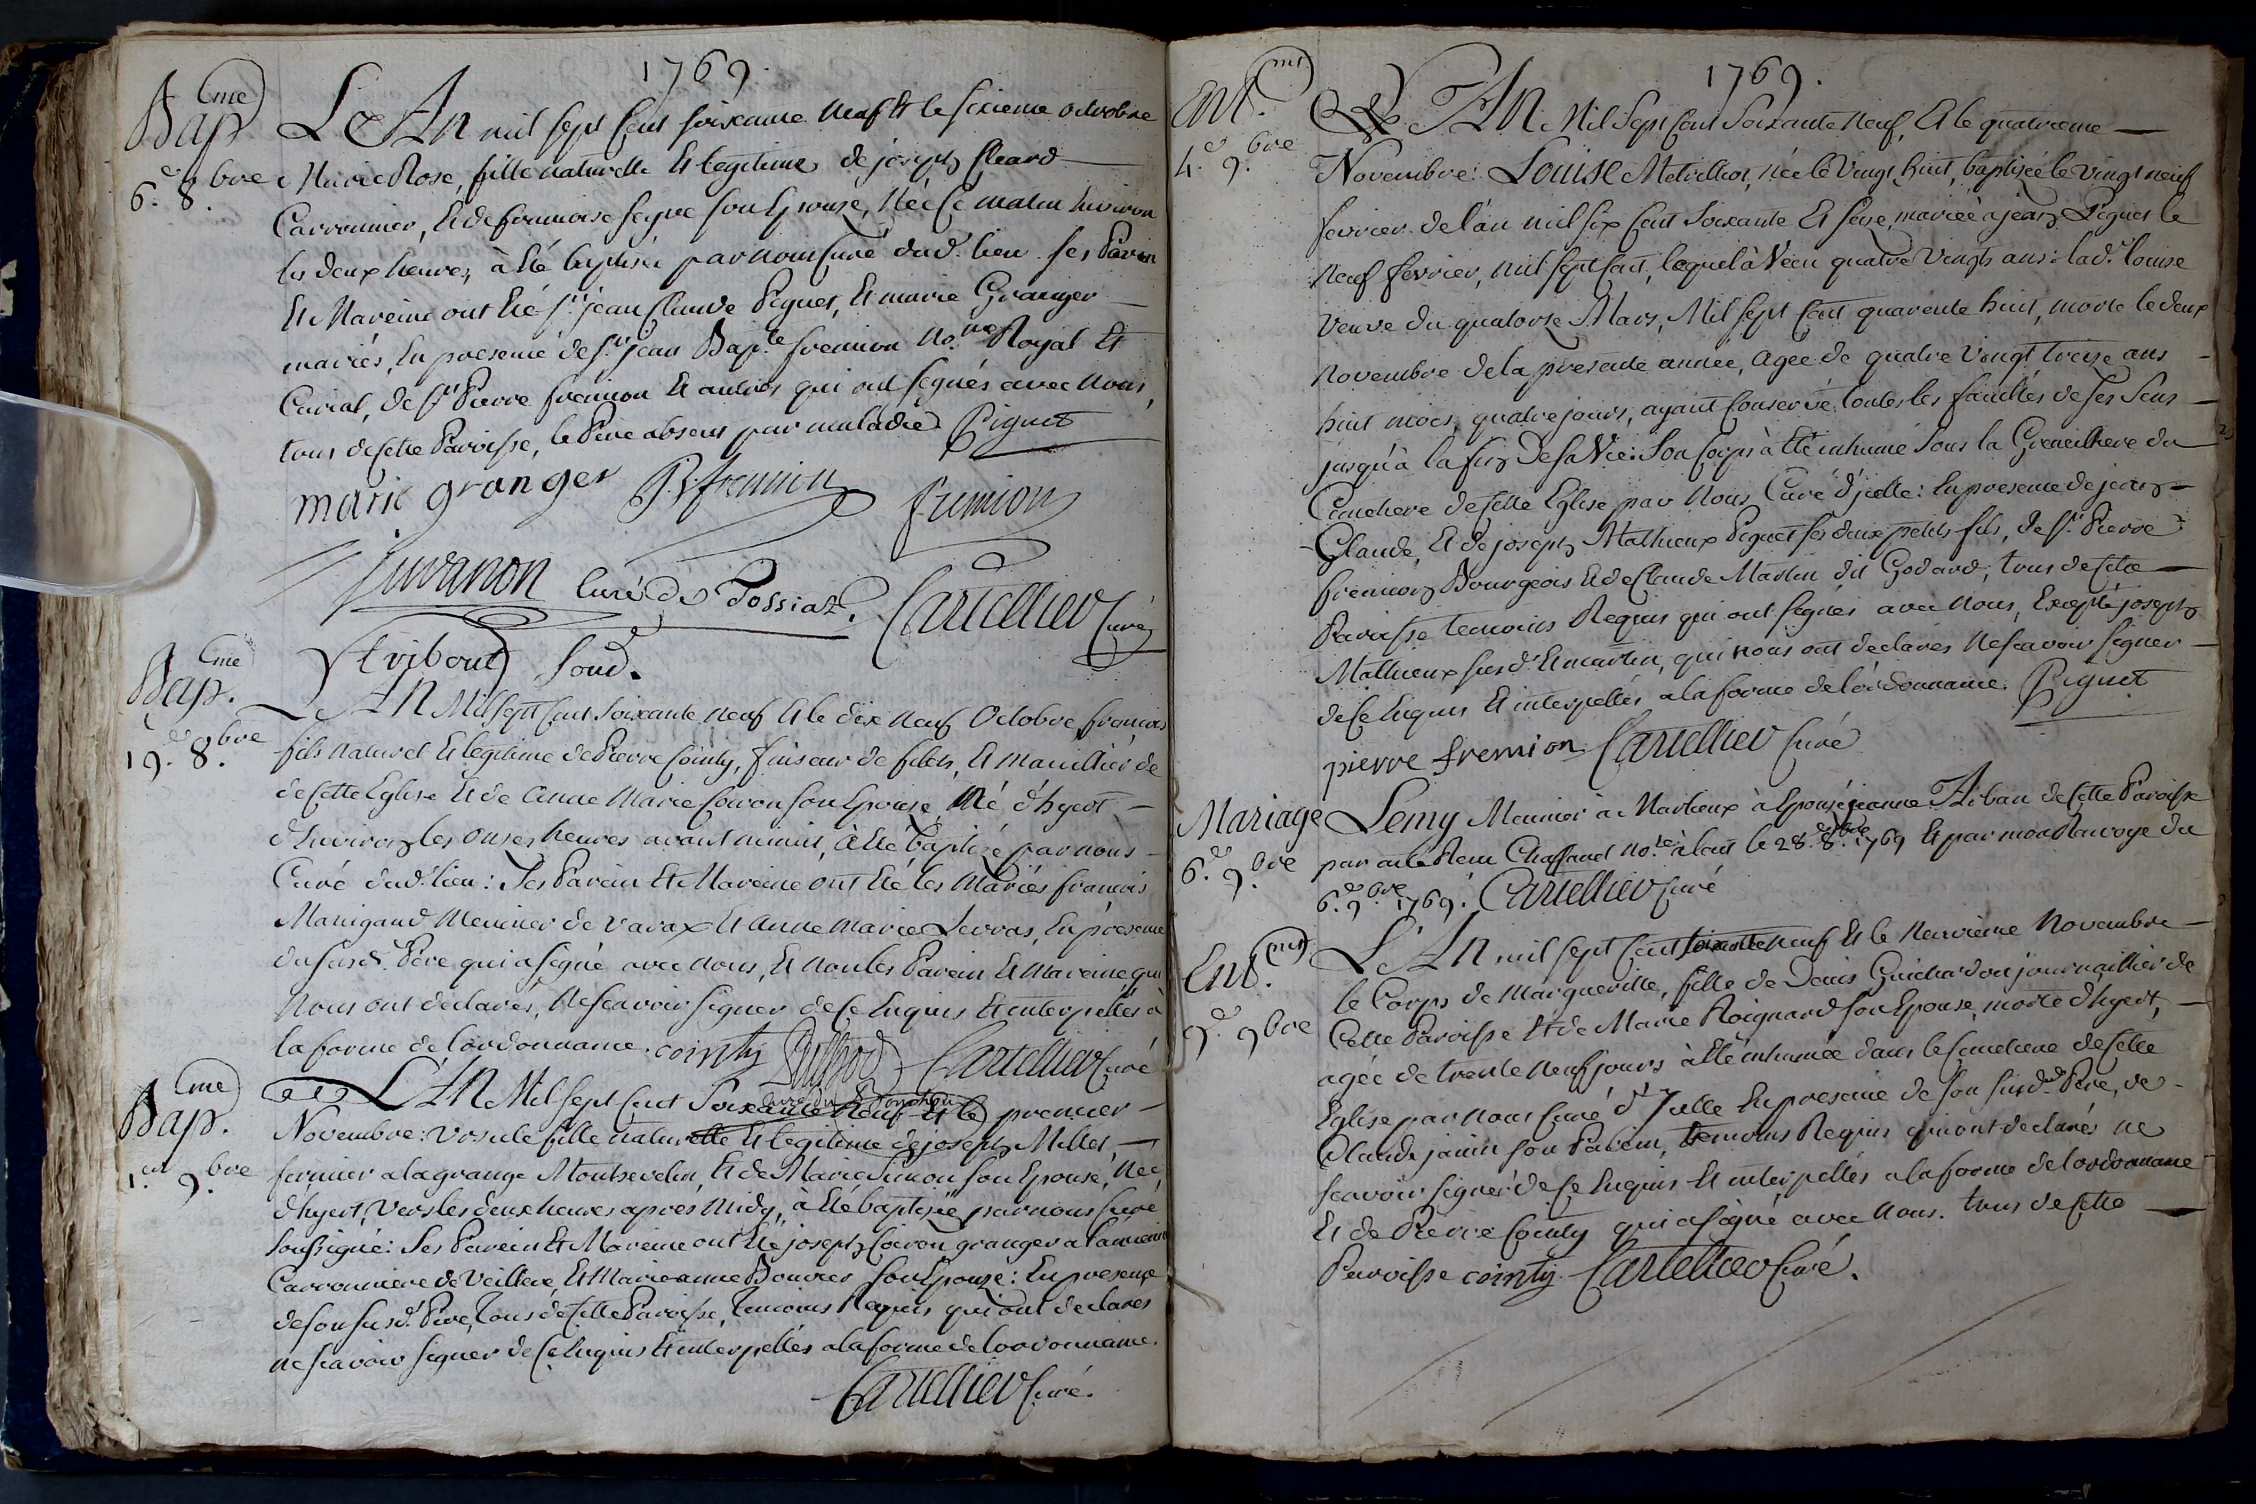 1769.
Bap.eme
6.e 8.bre
L'An mil sept cent soixante neuf et le sixieme octobre
Marie Rose, fille naturelle et legitime de joseph
Carronnier, et de francoise son epouse, née ce matin environ
les deux heures, à été baptisée par nous curé dud. lieu. ses Parein
et Mareine ont été s.r jean Claude Piquet, et marie Granger
mariés, en presence de s.r jean Bap.te fremion no.re Royal et
Curial, de s.r Pierre fremion et autres qui ont signés avec nous,
tous de cette Paroisse, le Pere absent par maladie Piquet
marie granger fremion fremion
juvanon Curé de Tossiat. Cartellier Curé
Bap.eme
19.e 8.bre
L'An Mil sept cent soixante neuf et le dix neuf Octobre francois
fils naturel et legitime de Pierre Cointy, faiseur de filets, et marillier de
de cette Eglise et de Anne Marie Coiron son Epouse, né d'hyert
d'environ les onse heures avant minuit, à été baptisé par nous
Curé dud. lieu: Ses Parein et Mareine ont été les Mariés francois
Manigand Meunier de Varax et Anne Marie Servas, en présence
du susd. Pere qui a signé avec nous, et non les Parein et Mareine, qui
nous ont declarés, ne scavoir signer de ce enquis et interpellés à
la forme de l'ordonnance. cointy Cartellier Curé
Bap.eme
1.er 9.bre
L'An Mil sept cent Soixante neuf et le premier
Novembre: Ursule fille naturelle et legitime de joseph Millet,
fermier a la grange Monthevelin, et de Marie Simon son Epouse, née,
d'hyert, vers les deux heures après midy, à été baptisée par nous Curé
soussigné: Ses Parein et Mareine ont été joseph Coiron granger a l'ancienne
Carronniere de Veilliere, et Marie anne Bouvier son Epouse: En presence
de son susd. Pere, tous de cette Paroisse, temoins Requis qui ont declarés
ne scavoir signer de ce enquis et interpellés a la forme de l'ordonnance.
Cartellier Curé.
1769.
Ent.mt
4.e 9.bre
L'AN Mil Sept Cent Soixante neuf, et le quatrieme
Novembre: Louise Metrillot, née le vingt huit, baptisée le vingt neuf
fevrier de l'an mil six cent soixante et seise, mariée a jean Piquet le
neuf fevrier, mil sept cent, lequel à vécu quatre vingts ans: lad. louise
veuve du quatorse Mars, Mil sept cent quarente huit, morte le deux
novembre de la presente année, agée de quatre vingt treise ans
huit mois, quatre jours, ayant conservé toutes les facultés de ses sens
jusqu'à la fin de sa vie: Son corps à été inhumé sous la du
Cimetiere de cette Eglise par nous Curé d'icelle: en presence de jean
Claude, et de joseph Mathieux Piquet ses deux petits fils, de s.r Pierre
fremion Bourgeois et de Claude Martin dit Godard, tous de cette
Paroisse temoins Requis qui ont signés avec nous, Excepté joseph
Mathieux susd. et martin, qui nous ont declarés ne scavoir signer
de ce enquis et interpellés a la forme de l'ordonnance. Piquet
pierre fremion Cartellier Curé
Mariage
6.e 9.bre
Lemy Meunier à Marlieux à Epousé jeanne Alban de cette Paroisse
par acte Reçu Chassand no.re à le 28.e 8.bre 1769 et par mon Renvoye du
6.e 9.bre 1769. Cartellier Curé
Ent.mt
9.e 9.bre
L'An mil sept cent soixante neuf et le neuvieme Novembre
le Corps de Margueritte, fille de Denis Guichardon journaillier de
cette Paroisse et de Marie Roignard son Epouse, morte d'hyert,
agée de trente neuf jours à été inhumée dans le Cimetiere de cette
Eglise par nous Curé d'Icelle en presence de son susd. Pere, de
Claude janin son Parein, temoins Requis qui ont declarés ne
scavoir signer de ce enquis et interpellés a la forme de l'ordonnance
et de Pierre Cointy qui a signé avec nous. tous de cette
Paroisse cointy. Cartellier Curé.